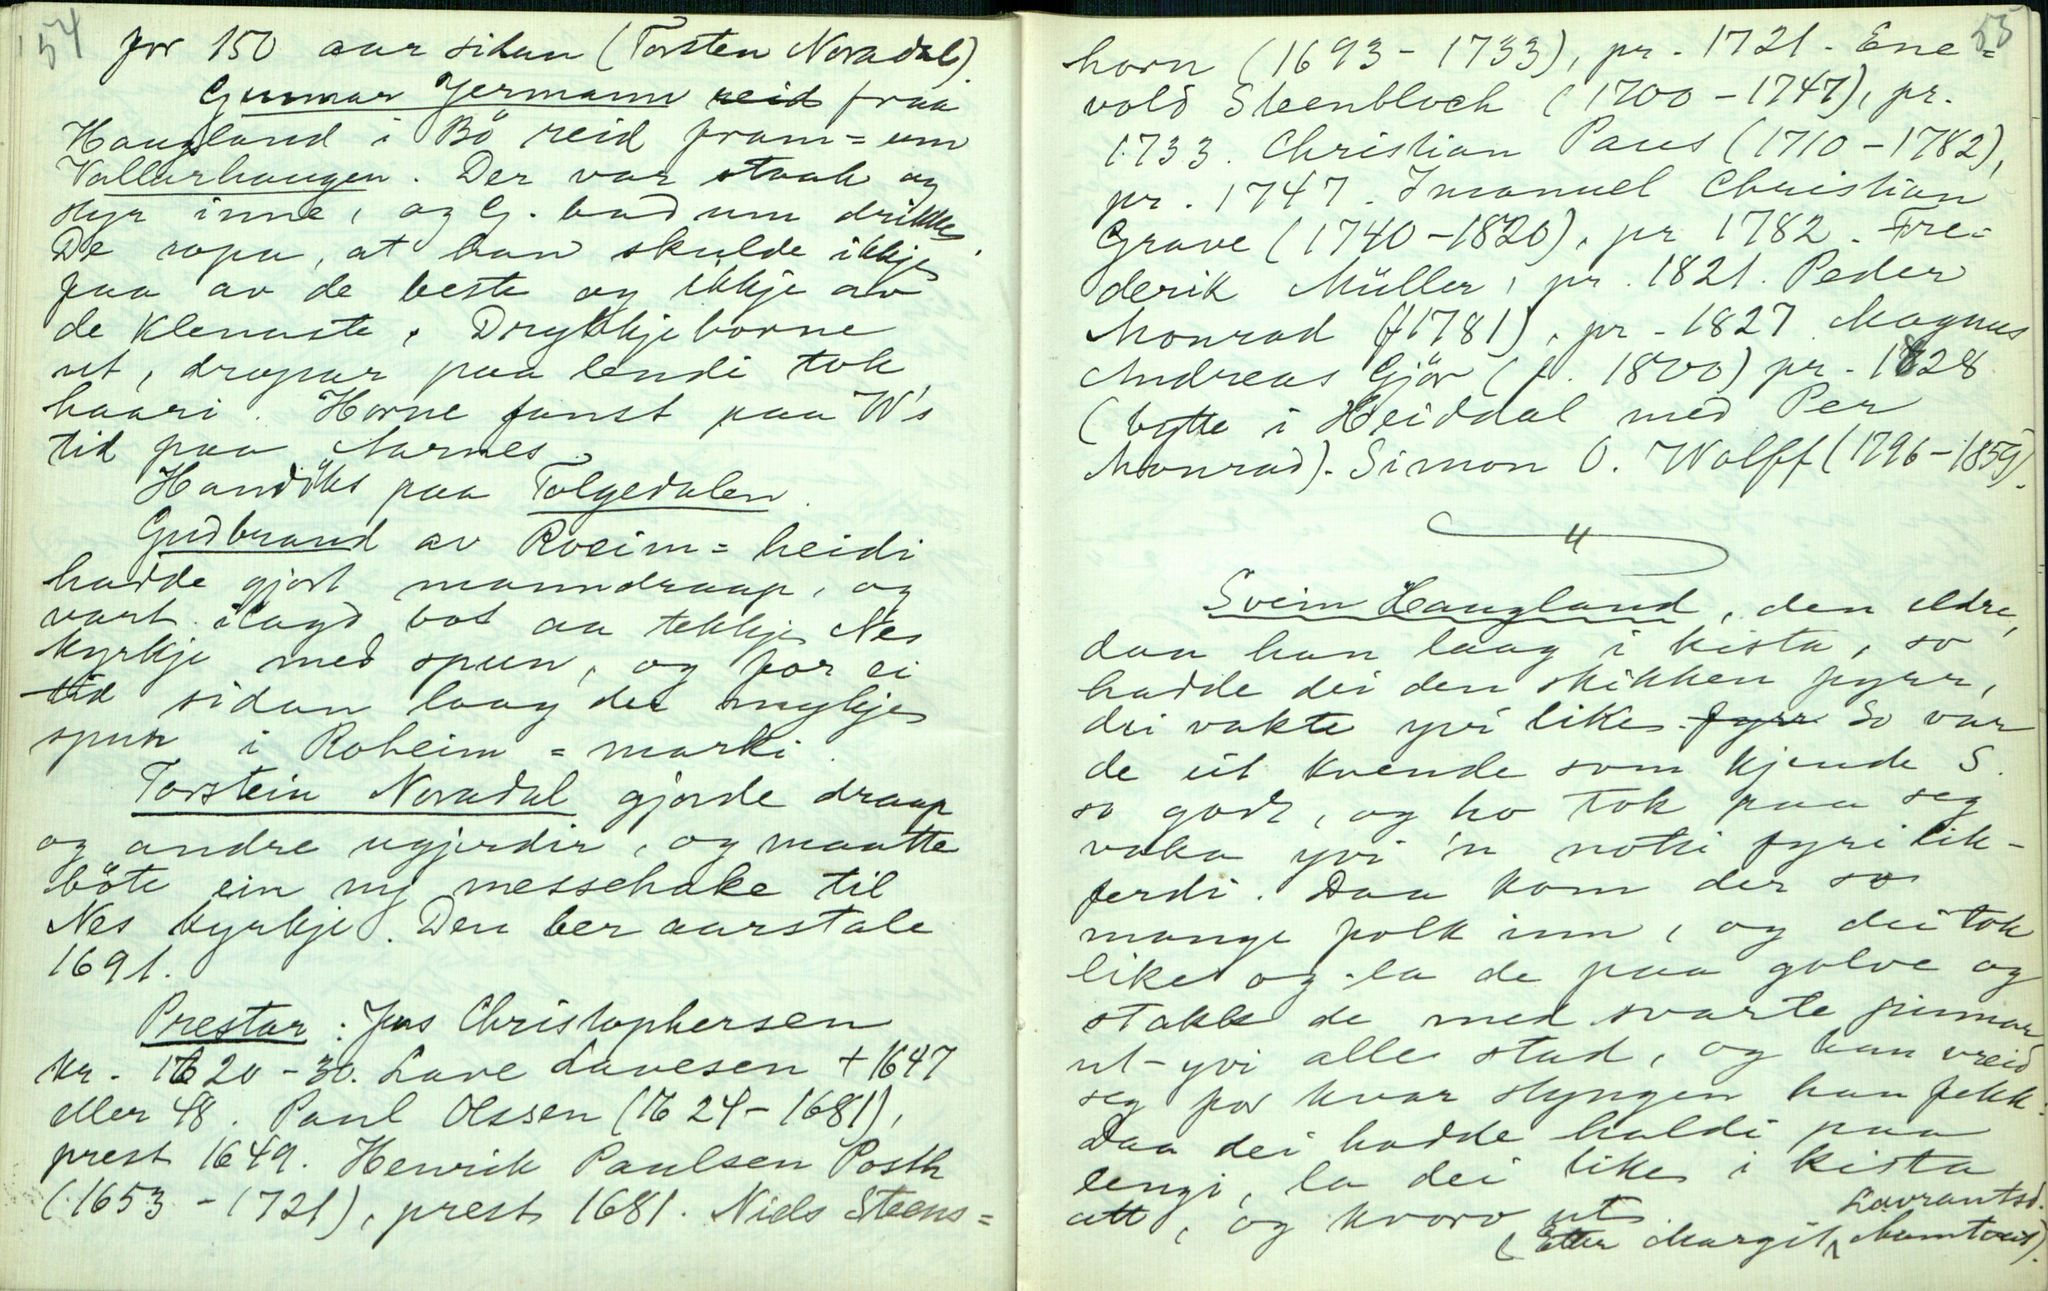 54
for 150 aar sidan (Torsten Noradal).
Gunnar Jermann reid fraa
Haugland i Bö reid fram = um
Vallarhaugen. Der var staak og
styr inne, og G. bad um drikke.
De ropa, at han skulde ikkje
faa av de beste og ikkje av
de klenaste. Drykkjehorne
ut, dropar paa lendi tok
haari. Horne fanst paa W's
tid paa Aarnes.
Handöks paa Tolgedalen.
Gudbrand av Roeim = heidi
hadde gjort manndraap, og
vart ilagd bot aa tekkje Nes
kyrkje med spun, og for ei
tid sidan laag der mykje
spun i Roheim = marki.
Torstein Noradal gjorde draap
og andre ugjerdir, og maatte
böte ein ny messehake til
Nes kyrkje. Den ber aarstale
1691.
Prestar: Jens Christophersen
kr. 1620-30. Lave Lavesen + 1647
eller 48. Paul Olssen (1624-1681),
prest 1649. Henrik Paulsen Posth
(1653-1721), prest 1681. Niels Steens=
55
horn (1693-1733), pr. 1721. Ene=
vold Steenbloch (1700-1747), pr.
1733. Christian Paus (1710-1782),
pr. 1747. Imanuel Christian
Grave (1740-1820), pr 1782. Fre=
derik Müller, pr. 1821. Peder
Monrad (f 1781), pr. 1827 Magnus
Andreas Gjör (f. 1800) pr. 1828
(bytte i Heiddal med Per
Monrad). Simon O. Wolff (1796-1859).
Svein Haugland, den eldre,
daa han laag i kista, so
hadde dei den skikken fyrr,
dei vakte yvi like. fyrr So var
de eit kvende som kjende S.
so godt, og ho tok paa seg
vaka yvi 'n notti fyri lik-
ferdi. Daa kom der so
mange folk inn, og dei tok
like og la de paa golve og
stakk de med svarte pinnar
ut-yvi alle stad, og han vreid
seg for kvar styngen han fekk.
Daa dei hadde haldi paa
lengi, la dei like i kista
att, og kvorv ut.
Lavrantsd.
(Etter Margit Mumtveit).